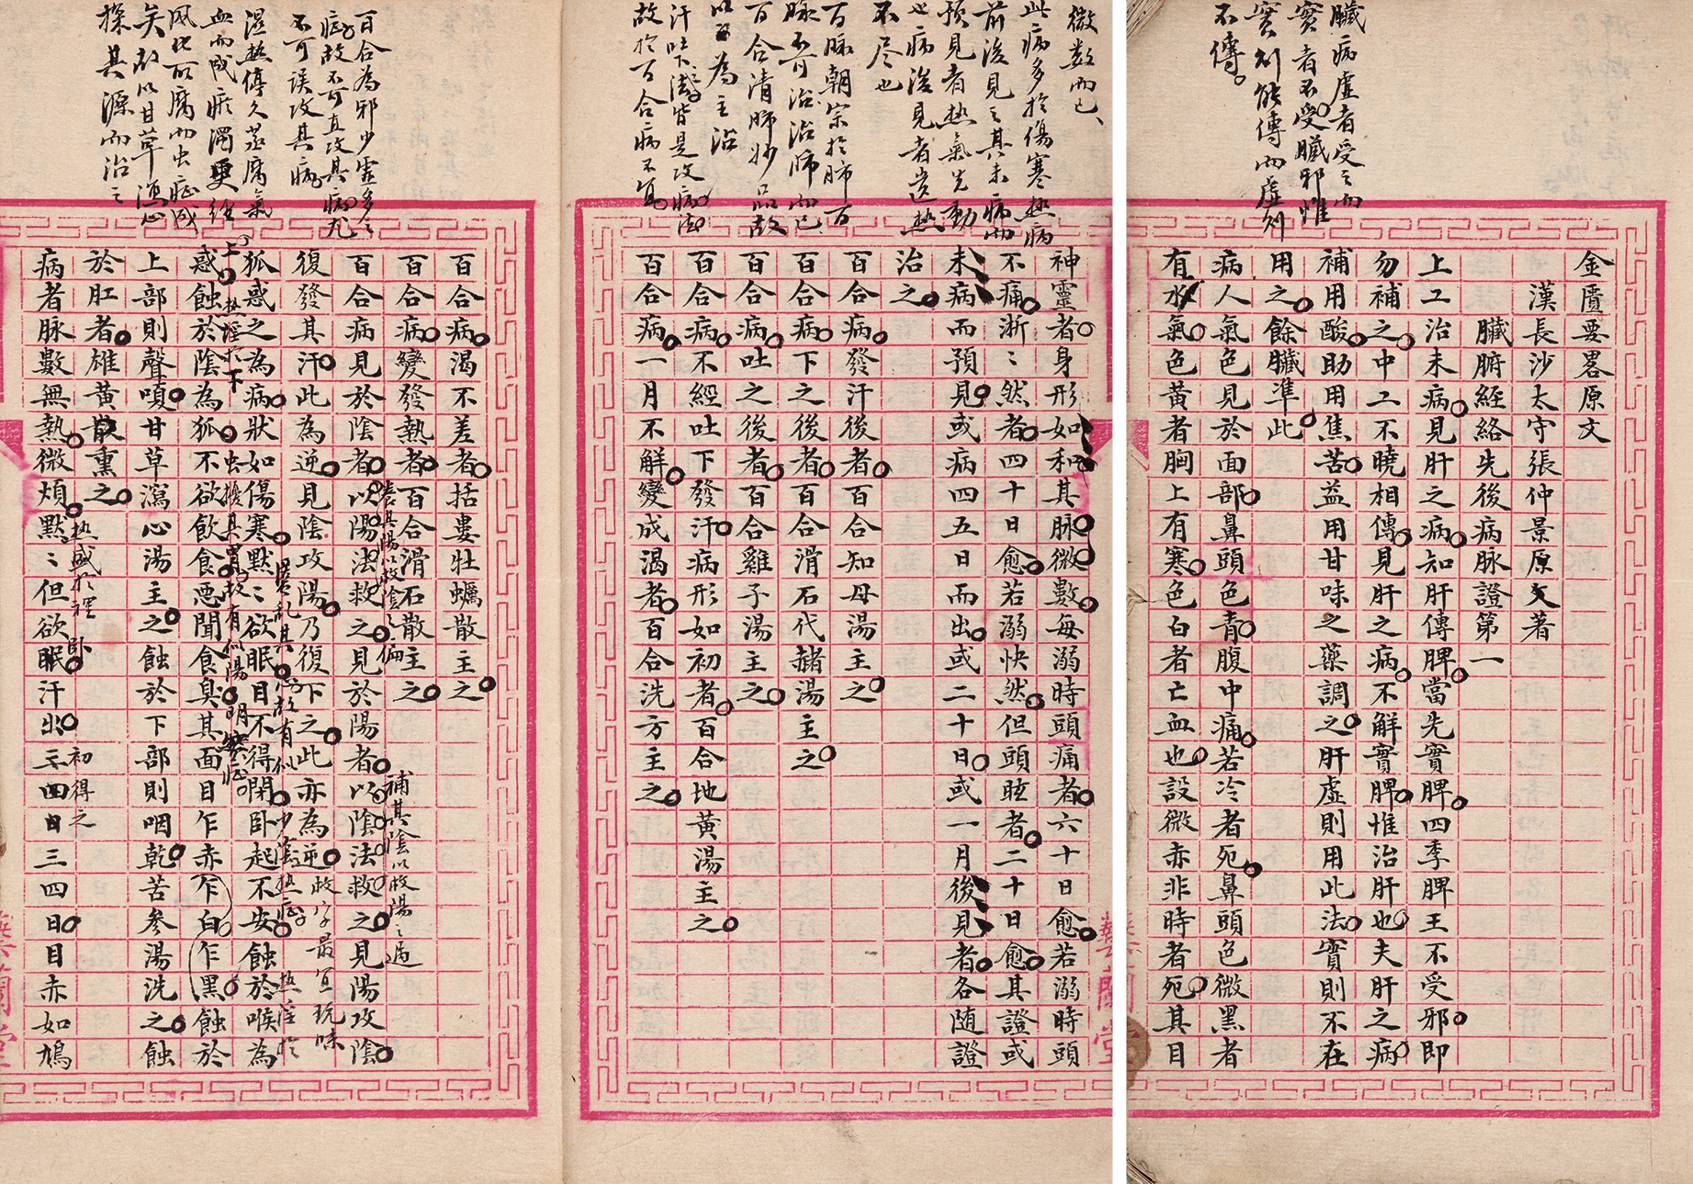 臟病虛者受之而
實者不受臟邪惟
實則能傳而虛則
不傳
金匱要畧原文
漢長沙太守張仲景原文著
臟腑經絡先後病脈證第一
上工治未病見肝之病知肝傳脾當先實脾四季脾王不受邪即
勿補之中工不曉相傳見肝之病不解實脾惟治肝也夫肝之病
補用酸助用焦苦益用甘味之藥調之肝虛則用此法實則不在
用之餘臟準此
病人氣色見於面部鼻頭色青腹中痛若冷者死鼻頭色微黑者
有水氣色黃者胸上有寒色白者亡血也設微赤非時者死其目
微数而已、
此病多於傷寒热病
前後見之其未病而
預見者热氣先動
也病後見者遺热
不尽也
百脉朝宗於肺百
脉不可治治肺而已
百合清肺妙品故
以為主治
汗吐下法皆是攻病法
故於百合病不宜
神靈者身形如和其脈微數每溺時頭痛者六十日愈若溺時頭
不痛淅〻然者四十日愈若溺快然但頭眩者二十日愈其證或
未病而預見或病四五日而出或二十日或一月後見者各隨證
治之
百合病發汗後者百合知母湯主之
百合病下之後者百合滑石代赭湯主之
百合病吐之後者百合雞子湯主之
百合病不經吐下發汗病形如初者百合地黃湯主之
百合病一月不解變成渴者百合洗方主之
百合為邪少虛多之
症故不可直攻其病尤
不可误攻其病
湿热停久蒸腐氣
血而成瘀濁更經
风化所腐而虫症成
矣故以甘草瀉心
探其源而治之
百合病渴不差者括蔞牡蠣散主之
百合病變發熱者百合滑石散主之
百合病見於陰者以陽法救之見於陽者以陰法救之見陽攻陰
養其陽以救陰之偏
補其陰以救陽之過
復發其汗此為逆見陰攻陽乃復下之此亦為逆
救字最宜玩味
狐惑之為病狀如傷寒默〻欲眠目不得閉臥起不安蝕於喉為
惑蝕於陰為狐不欲飲食惡聞食臭其面目乍赤乍黑乍白蝕於
上部則聲嗄甘草瀉心湯主之蝕於下部則咽乾苦參湯洗之蝕
於肛者雄黃散熏之
病者脈數無熱微煩默〻但欲臥汗出初得之三四日目赤如鳩
热盛於裡